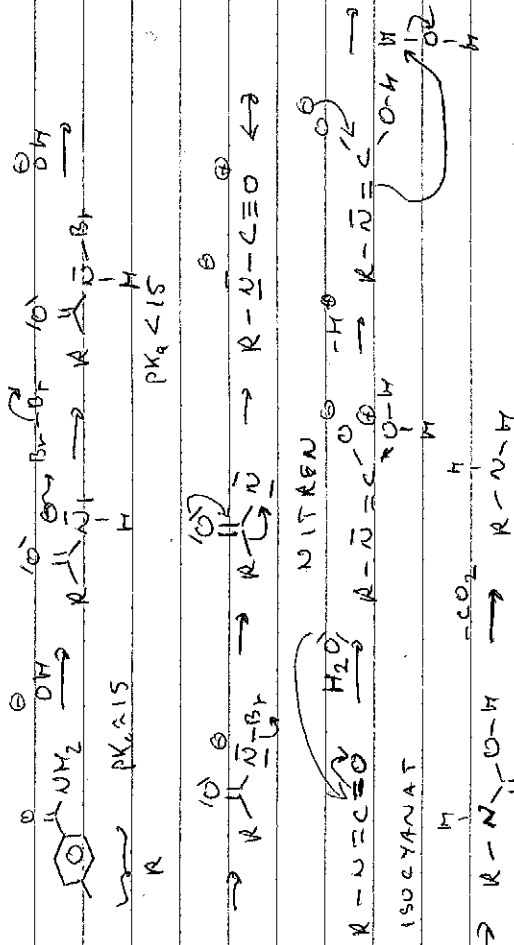 O NH₂ ⊖OH → R–C(=O)–N̄⊖–H Br–Br → R–C(=O)–N̄–Br H ⊖OH →
R pKₐ ≈ 15 pKₐ < 15
→ R–C(=O)–N̄⊖–Br → R–C(=O)–N̄ → R–N̄⊖–C≡O⊕ ↔
NITREN
R–N̄=C=O H₂O → R–N̄=C O⊖ ⊕O–H H –H⊕ → R–N̄=C O⊖ O–H →
ISOCYANAT H H–O–H
→ R–N–C–O–H H –CO₂ → R–N–H H